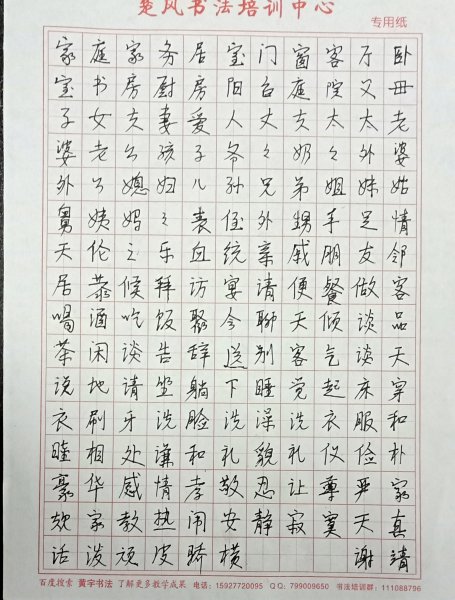 楚风书法培训中心
专用纸
家庭家务居室门窗客厅卧
室书房厨房阳台庭院父母
子女夫妻爱人丈夫太太老
婆老公孩子爷々奶々外婆
外公媳妇儿孙兄弟姐妹姑
舅姨妈々表侄外甥手足情
天伦之乐血统亲戚朋友邻
居恭候拜访宴请便餐做客
喝酒吃饭聚会聊天倾谈品
茶闲谈告辞送别客气谈天
说地请坐躺下睡觉起床穿
衣刷牙洗脸洗澡洗衣服和
睦相处谦和礼貌礼仪俭朴
豪华感情孝敬忍让尊严家
规家教热闹安静寂寞天真
活泼顽皮骄横 谢靖
百度搜索 黄宇书法 了解更多教学成果 电话：15927720095 QQ：799009650 书法培训群：111088796